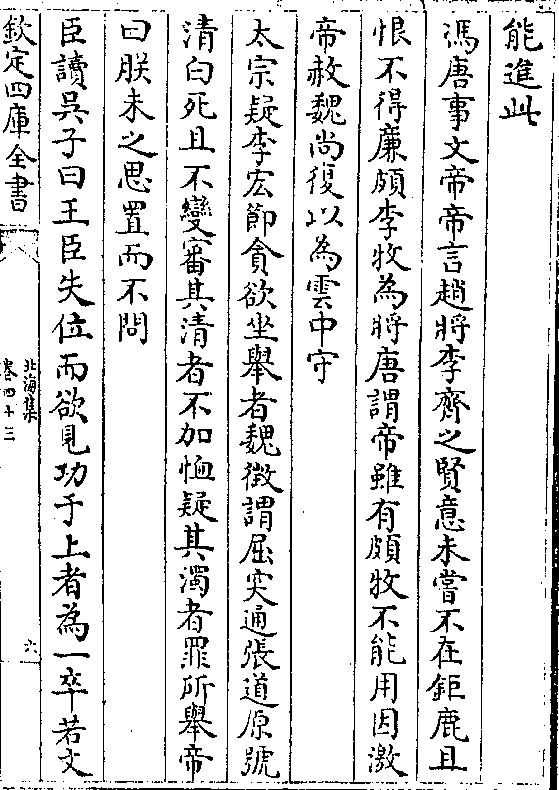 能進此
馮唐事文帝帝言趙將李齊之賢意未嘗不在鉅鹿且
恨不得廉頗李牧為將唐謂帝雖有頗牧不能用因激
帝赦魏尚復以為雲中守
太宗疑李宏節貪欲坐舉者魏徵謂屈突通張道原號
清白死且不變審其清者不加恤疑其濁者罪所舉帝
曰朕未之思置而不問
臣讀吳子曰王臣失位而欲見功于上者為一卒若文
欽定四庫全書
北海集
卷四十三
六